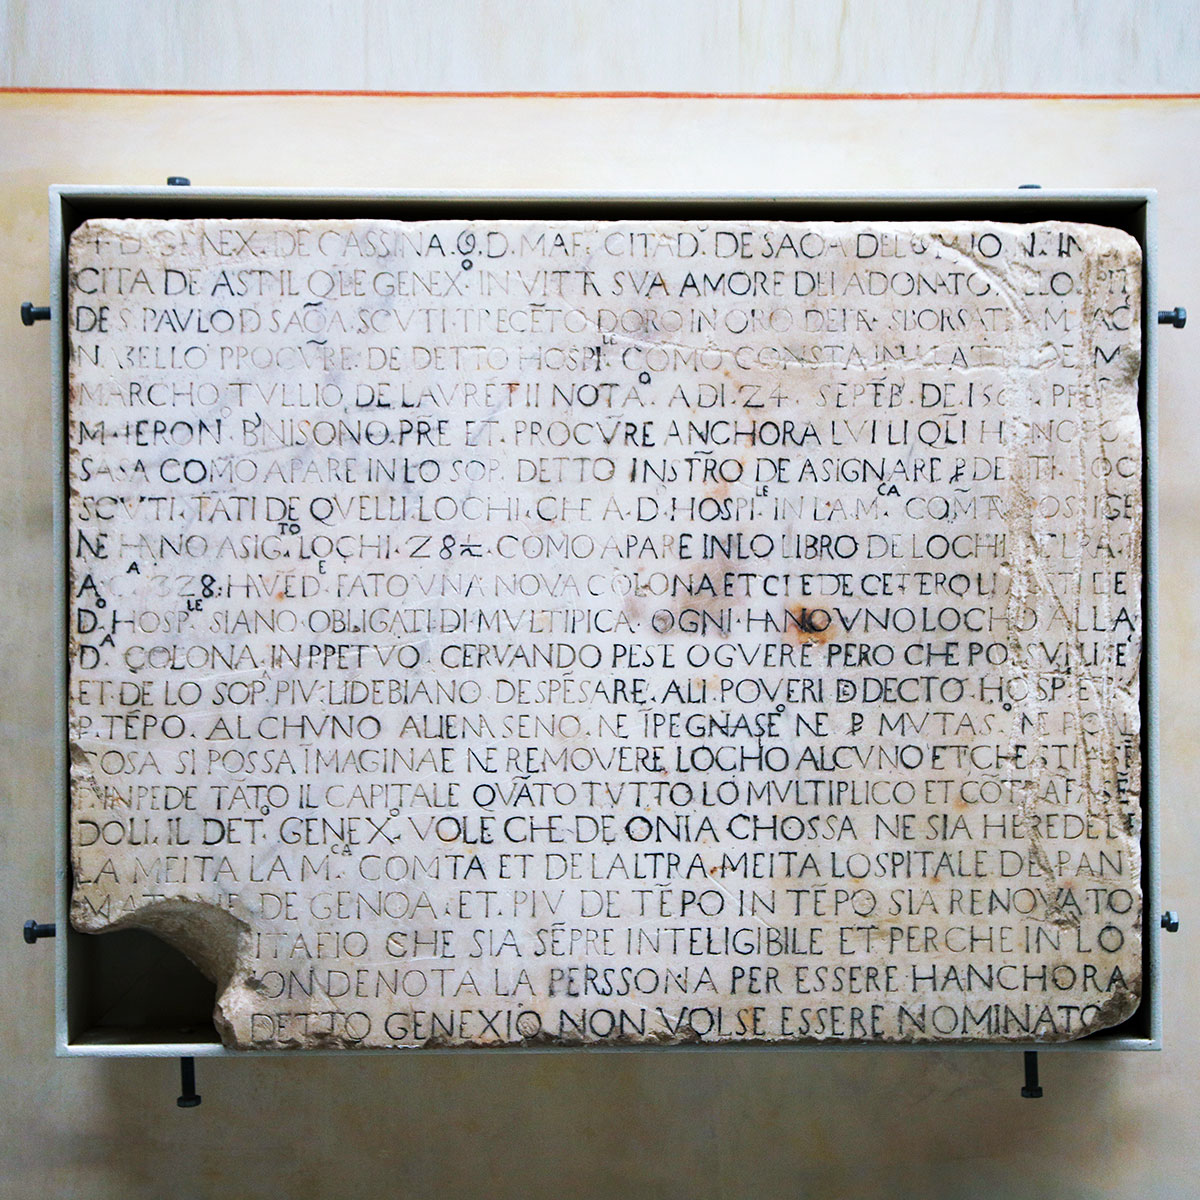 ✝ D. GENEX. DE CASSINA. Q. D. MAF. CITAD. DE SAŌA DEL IN
CITA DE ASTI IL QLE GENEX.º IN VITĀ SVA AMORE DEI A DONATO
DE S. PAVLO D SAŌA. SCVTI. TRECĒTO DORO IN ORO DE ITA. SBORSATI A M.
NABELLO PPOCVR̃E. DE DETTO HOSPI.LE COMO CONSTA IN DE M
MARCHO TVLLIO DE LAVRETII NOTA.º A DI. 24. SEPTEB. DE.
M. IERON. BNISONO. PR̃E ET. PROCVR̃E ANCHORA LVI LI QL̃I
SASA COMO APARE IN LO SOP. DETTO INSTR̃O DE ASIGNARE P DETTI. LOC
SCVTI. TĀTI DE QVELLI. LOCHI. CHE A. D. HOSPI.LE IN LA M.CA COMTA
NE HANO ASIG.TO LOCHI. 28 COMO APARE IN LO LIBRO DE LOCHI
A. C.A 328: HVĒD.E FATO VNA NOVA COLONA ET CIE DE CETERO LI DE
D.º HOSP.LE SIANO OBLIGATI DI MVLTIPICA. OGNI. HANO VNO LOCHO ALLA
D.A COLONA. IN PPETVO. CERVANDO PESTE O GVERE PERO CHE PO
ET. DE LO SOP. PIV. LI DEBIANO DESPĒSARE. ALI. POVERI DE DECTO. HOSP. ET
P. TĒPO. ALCHVNO ALIENASENO. NE ĪPEGNASE NE P MVTAS.º NE P
COSA SI POSSA ĪMAGINAE NE REMOVERE LOCHO ALCVNO ET CHE STI
INPEDE TATO IL CAPITALE QVĀTO TVTTO LO MVLTIPLICO ET CŌTRAFASE
DOLI. IL DET.º GENEX.º VOLE CHE DE ONIA CHOSSA NE SIA HEREDE
LA MEITA LA M.CA COMTA ET DE LALTRA. MEITA LOSPITALE DE PAN
DE GENOA. ET. PIV DE TĒPO IN TĒPO SIA RENOVATO
ITAFIO CHE SIA SĒPRE INTELIGIBILE ET PERCHE IN LO
ON DENOTA LA PERSSONA PER ESSERE HANCHORA
DETTO GENEXIO NON VOLSE ESSERE NOMINATO